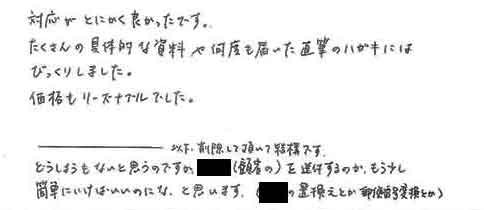 対応がとにかく良かったです。
たくさんの具体的な資料や何度も届いた直筆のハガキには
びっくりしました。
価格もリーズナブルでした。
以下、削除して頂いて結構です。
どうしようもないと思うのですが、(顧客の)を送付するのが、もう少し
簡単にいけばいいのにな、と思います。(の置換えとか郵便番号変換とか)